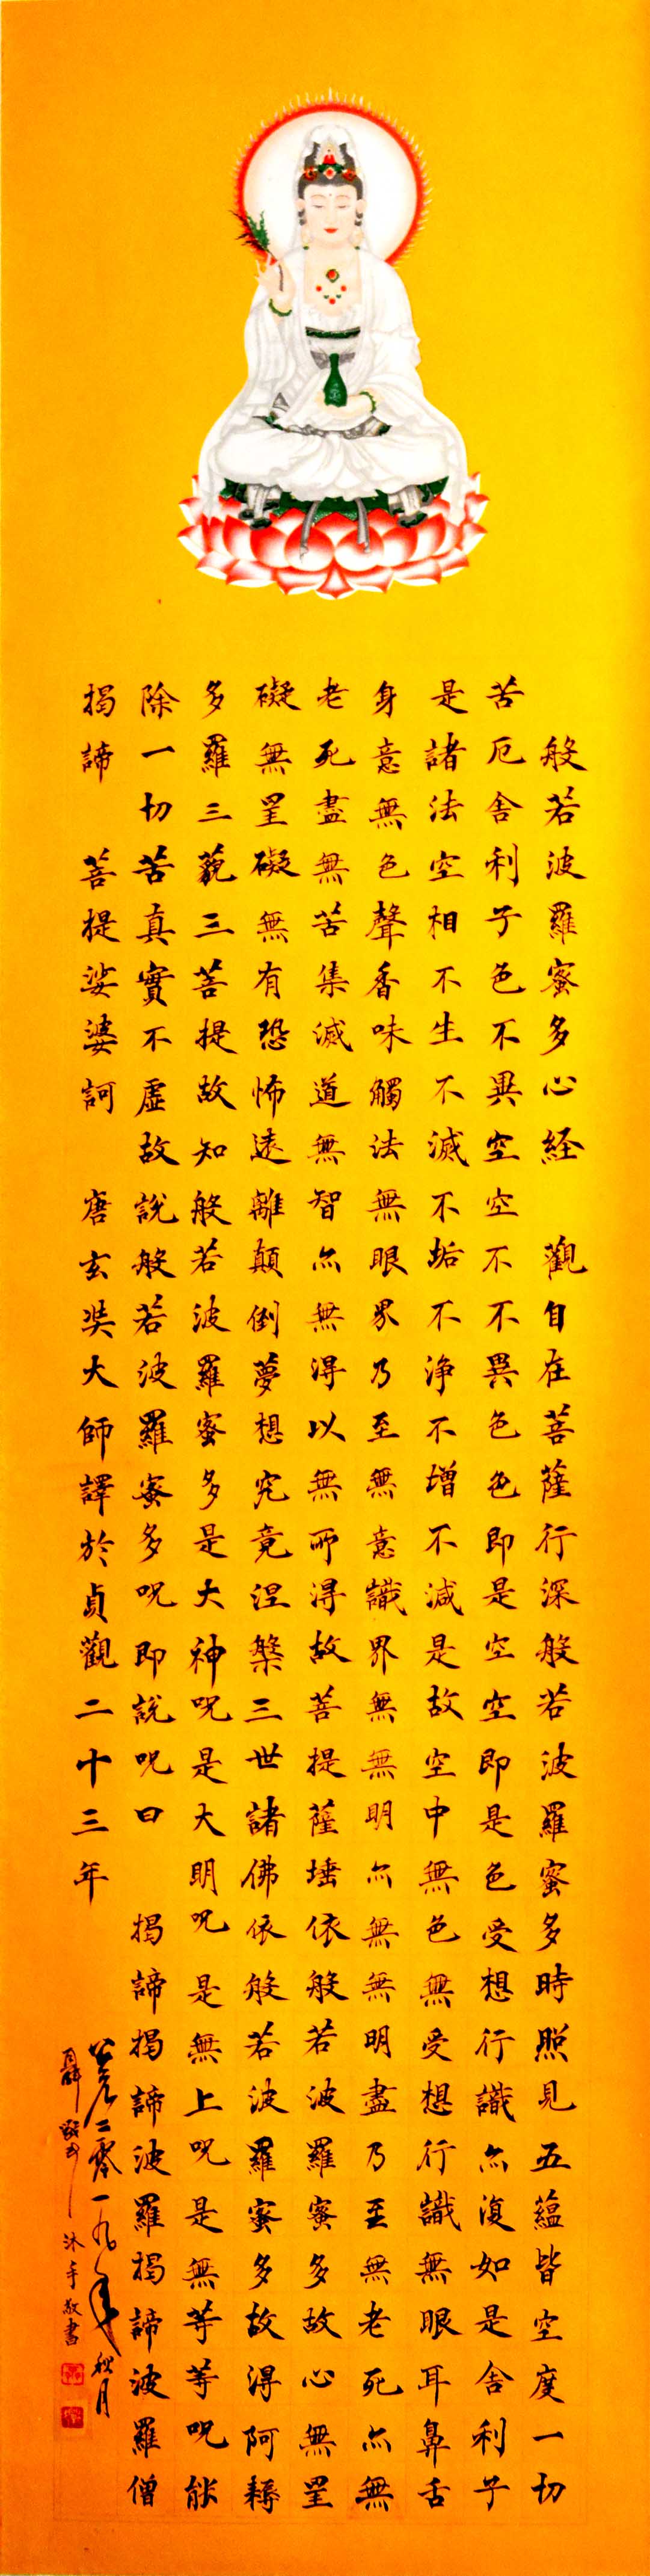 般若波羅蜜多心経 觀自在菩薩行深般若波羅蜜多時照見五蘊皆空度一切
苦厄舍利子色不異空空不不異色色即是空空即是色受想行識亦復如是舍利子
是諸法空相不生不滅不垢不淨不增不減是故空中無色無受想行識無眼耳鼻舌
身意無色聲香味觸法無眼界乃至無意識界無無明亦無無明盡乃至無老死亦無
老死盡無苦集滅道無智亦無得以無所得故菩提薩埵依般若波羅蜜多故心無罣
礙無罣礙無有恐怖遠離顛倒夢想究竟涅槃三世諸佛依般若波羅蜜多故得阿耨
多羅三藐三菩提故知般若波羅蜜多是大神呪是大明呪是無上呪是無等等呪能
除一切苦真實不虛故說般若波羅蜜多呪即說呪曰 揭諦揭諦波羅揭諦波羅僧
揭諦 菩提娑婆訶 唐玄奘大師譯於貞觀二十三年
公元二零一九年秋月
沐手敬書